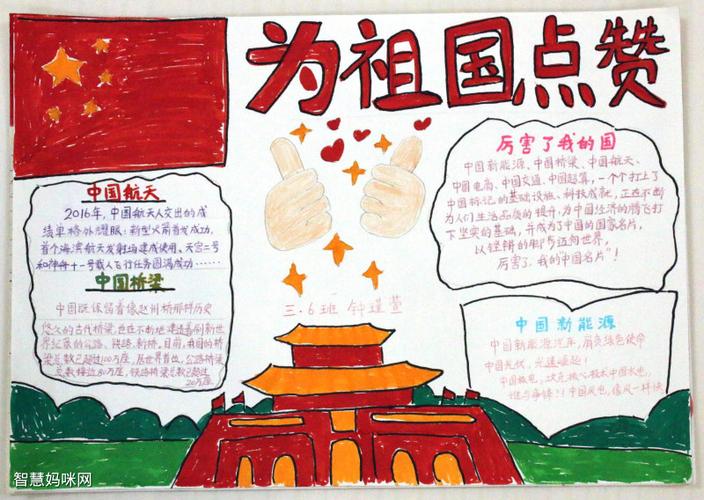 为祖国点赞
中国航天
2016年,中国航天人交出的成
绩单格外耀眼:新型火箭首发成功,
首个海滨航天发射场建成使用、天宫二号
和神舟十一号载人飞行任务圆满成功……
中国桥梁
中国既保留着像赵州桥那样历史
悠久的古代桥梁,也在不断地建造着刷新世
界纪录的公路、铁路新桥。目前,我国的桥
梁总数已超过100万座,居世界首位,公路桥梁
总数接近80万座,铁路桥梁总数已超过
20万座。
三.6班 钟瑾萱
厉害了我的国
中国新能源、中国桥梁、中国航天、
中国电商、中国交通、中国超算,一个个打上了
中国标记的基础设施、科技成就,正在不断
为人们生活品质的提升,为中国经济的腾飞打
下坚实的基础,并成为了中国的国家名片,
以铿锵的脚步迈向世界,
厉害了,我的“中国名片”!
中国新能源
中国新能源汽车,肩负绿色使命
中国光伏,光速崛起!
中国核电,攻克核心技术中国水电,
谁与争锋?!中国风电,像风一样快
智慧妈咪网